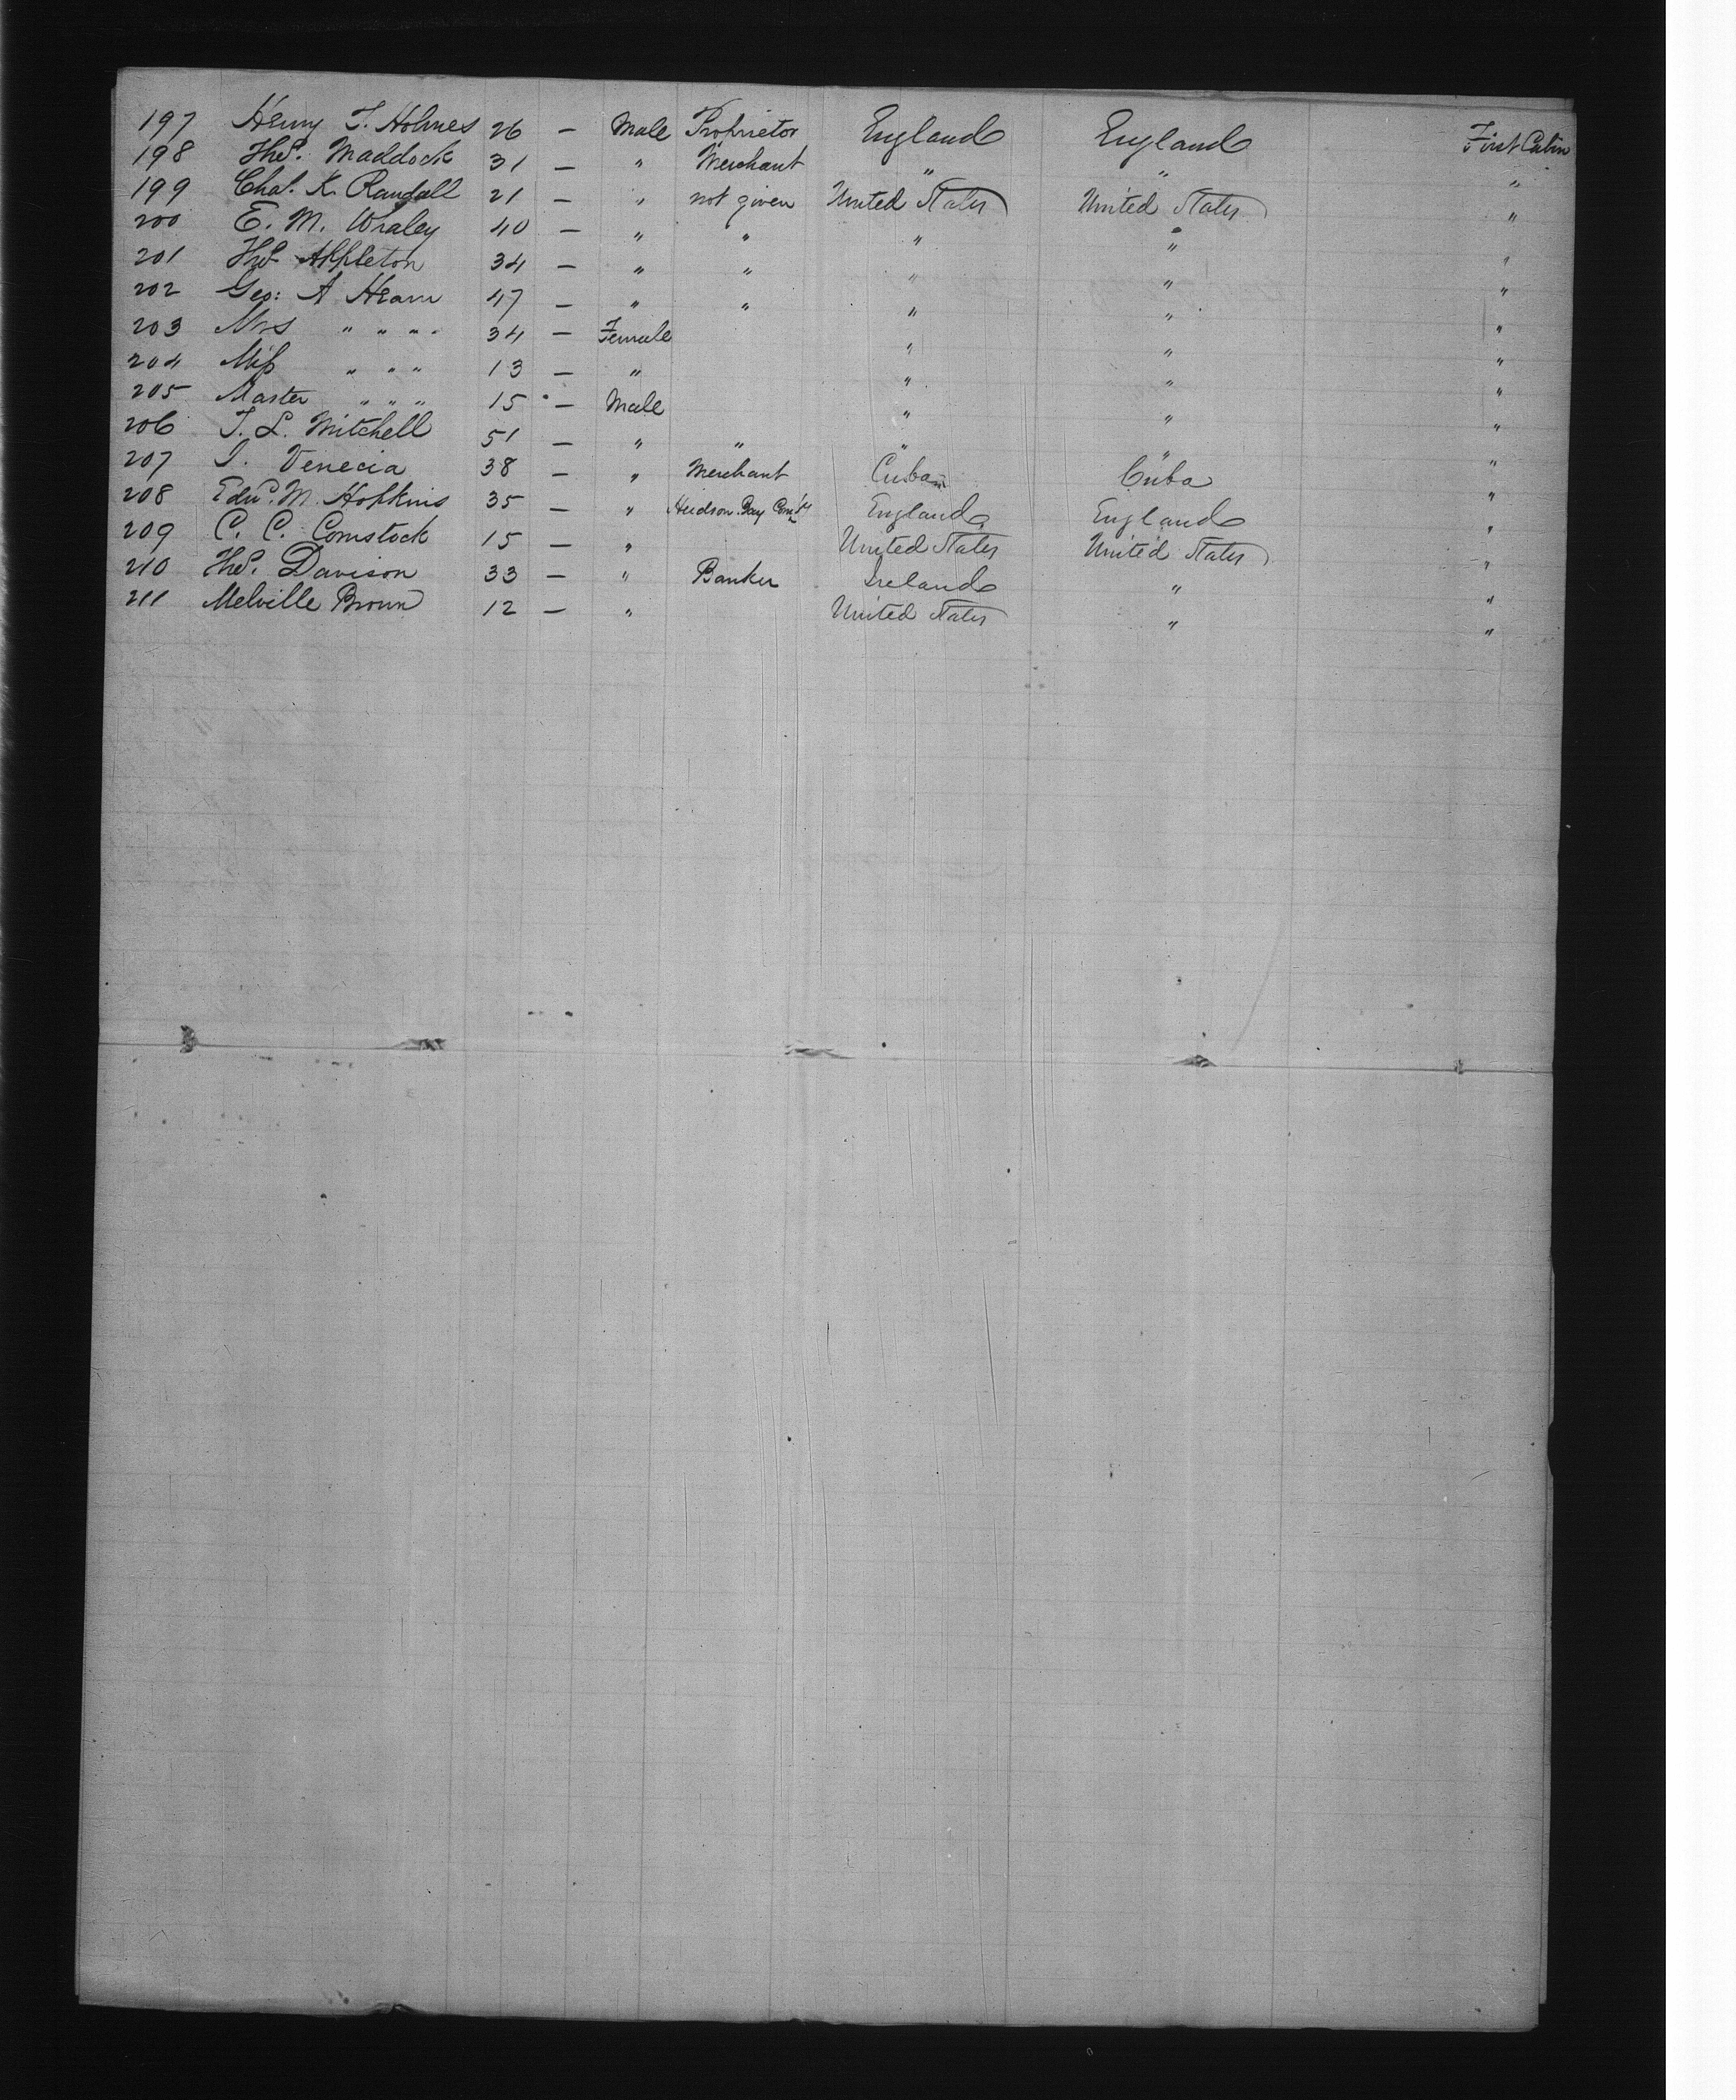 197 Henry T. Holmes 26 — Male Proprietor England England First Cabin
198 Thos. Maddock 31 — " Merchant " " "
199 Chas. K. Randall 21 — " not given United States United States "
200 E. M. Wraley 40 — " " " " "
201 Thos Appleton 34 — " " " " "
202 Geo: A Hearn 47 — " " " " "
203 Mrs " " " " 34 — Female " " "
204 Miss " " " 13 — " " " "
205 Master " " " 15 — Male " " "
206 T. L. Mitchell 51 — " " " " "
207 J. Venecia 38 — " Merchant Cuba Cuba "
208 Edwd. M. Hopkins 35 — " Hudson Bay Comy England England "
209 C. C. Comstock 15 — " United States United States "
210 Thos. Davison 33 — " Banker Ireland " "
211 Melville Brown 12 — " United States " "